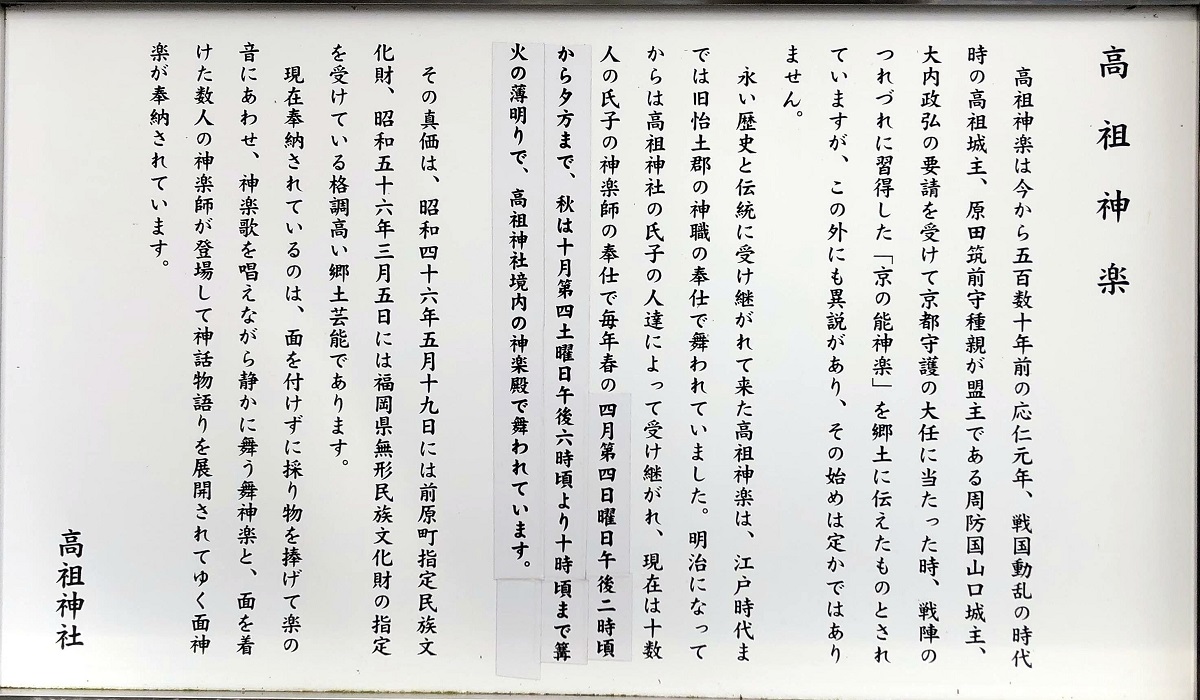 高祖神楽
高祖神楽は今から五百数十年前の応仁元年、戦国動乱の時代
時の高祖城主、原田筑前守種親が盟主である周防国山口城主、
大内政弘の要請を受けて京都守護の大任に当たった時、戦陣の
つれづれに習得した「京の能神楽」を郷土に伝えたものとされ
ていますが、この外にも異説があり、その始めは定かではあり
ません。
永い歴史と伝統に受け継がれて来た高祖神楽は、江戸時代ま
では旧怡土郡の神職の奉仕で舞われていました。明治になって
からは高祖神社の氏子の人達によって受け継がれ、現在は十数
人の氏子の神楽師の奉仕で毎年春の四月第四日曜日午後二時頃
から夕方まで、秋は十月第四土曜日午後六時頃より十時頃まで篝
火の薄明りで、高祖神社境内の神楽殿で舞われています。
その真価は、昭和四十六年五月十九日には前原町指定民族文
化財、昭和五十六年三月五日には福岡県無形民族文化財の指定
を受けている格調高い郷土芸能であります。
現在奉納されているのは、面を付けずに採り物を捧げて楽の
音にあわせ、神楽歌を唱えながら静かに舞う舞神楽と、面を着
けた数人の神楽師が登場して神話物語りを展開されてゆく面神
楽が奉納されています。
高祖神社